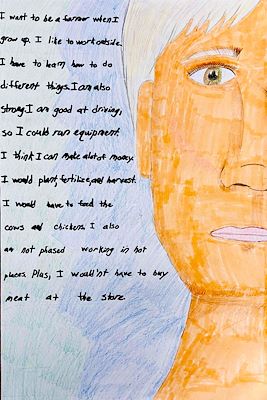 I want to be a farmer when I
grow up. I like to work outside.
I have to learn how to do
different things. I am also
strong. I am good at driving,
so I could run equipment.
I think I can make alot of money.
I would plant, fertilize, and harvest.
I would have to feed the
cows and chickens. I also
am not phased working in hot
places. Plus, I wouldn't have to buy
meat at the store